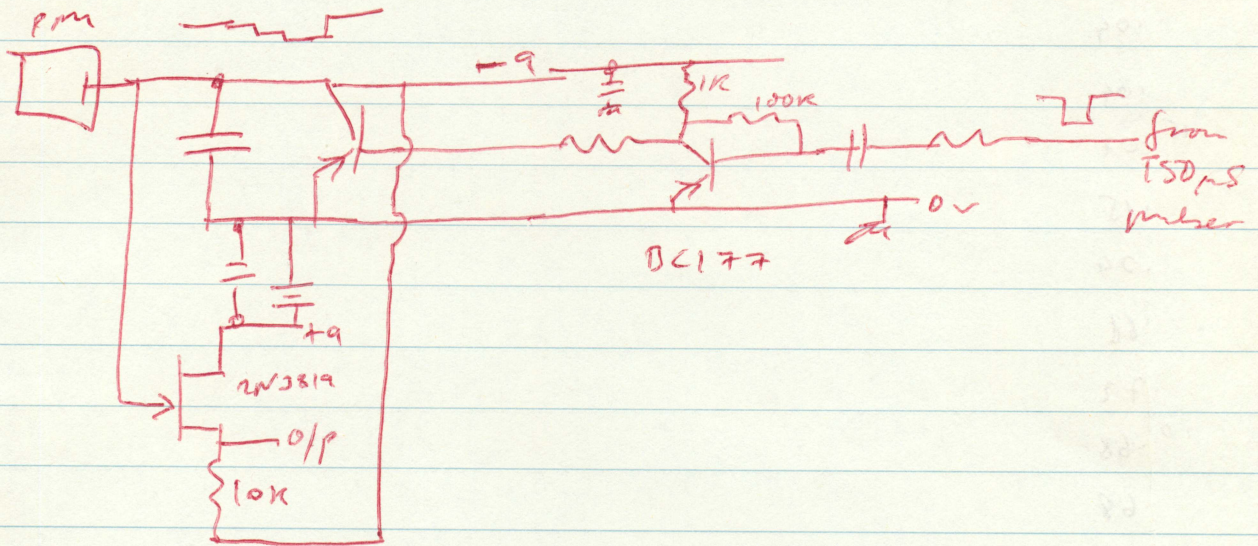 pm
-9
1K
100K
from
150µS
pulser
0v
BC177
+9
2N3819
O/P
10K